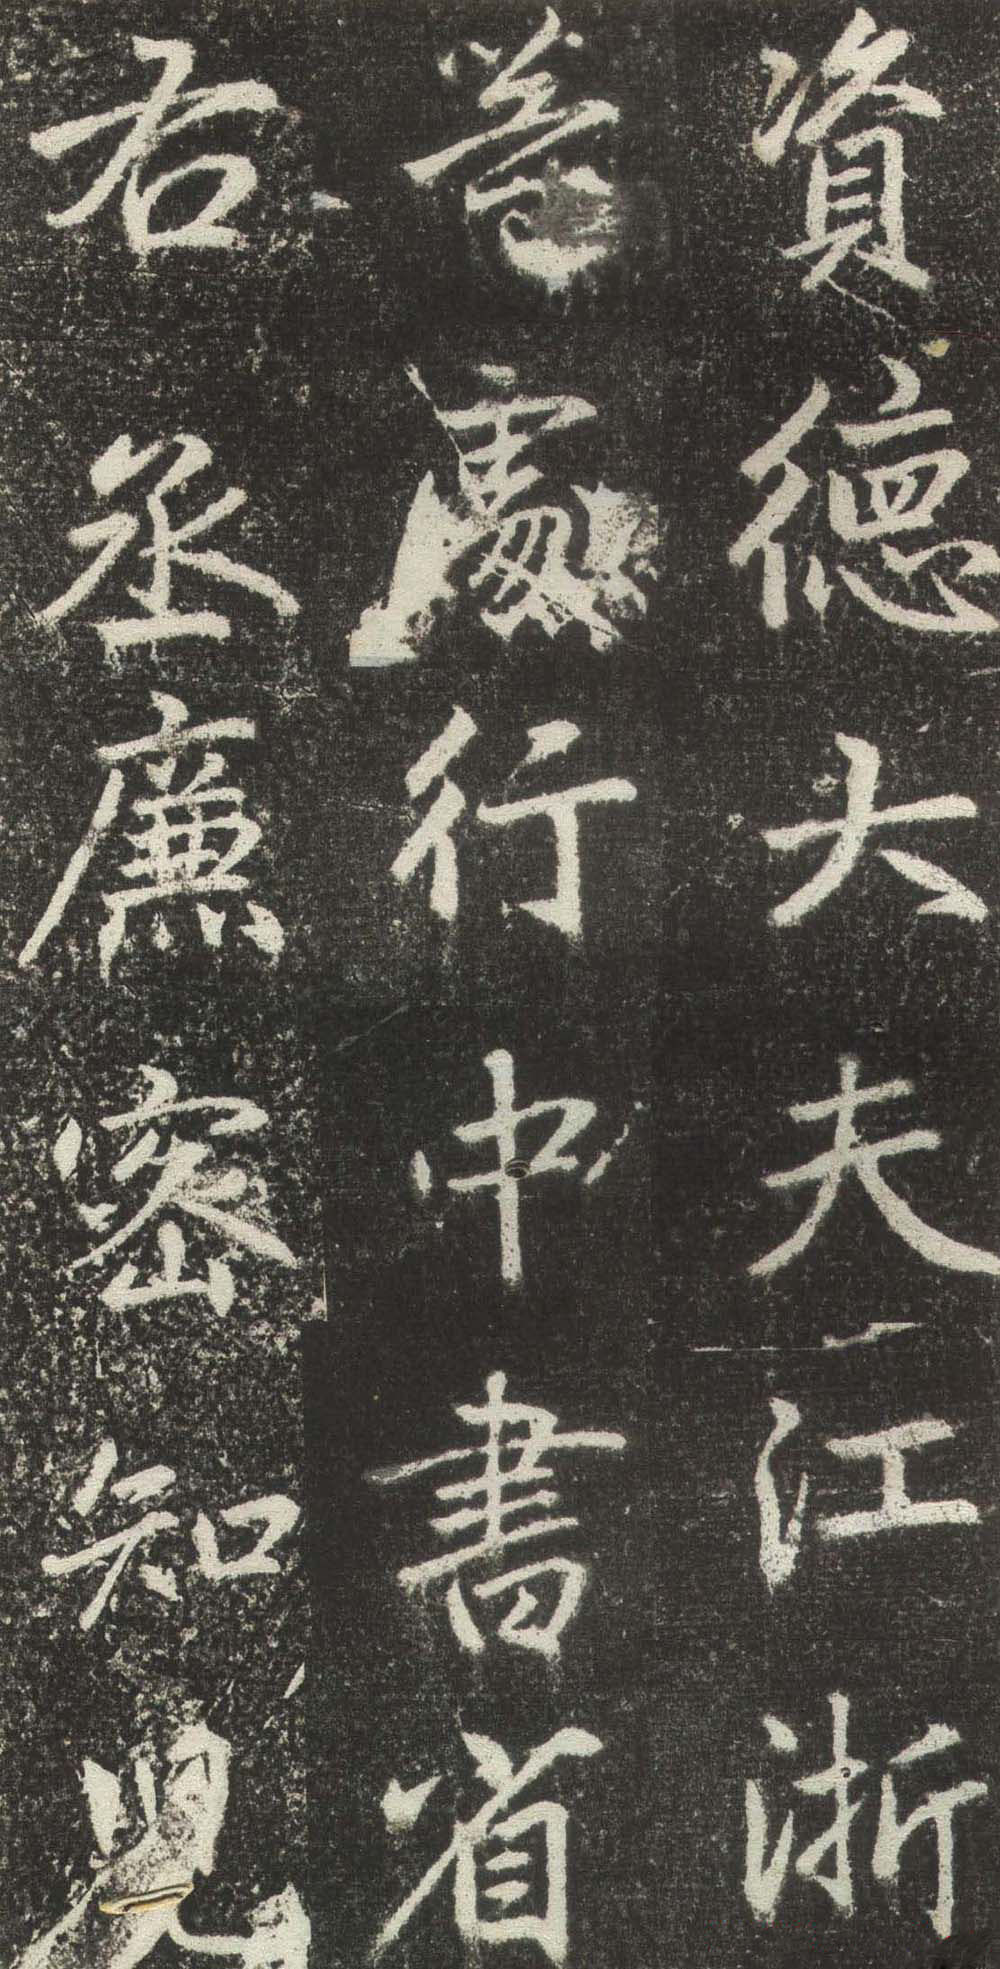 資德大夫江浙
等處行中書省
右丞廉密知兒